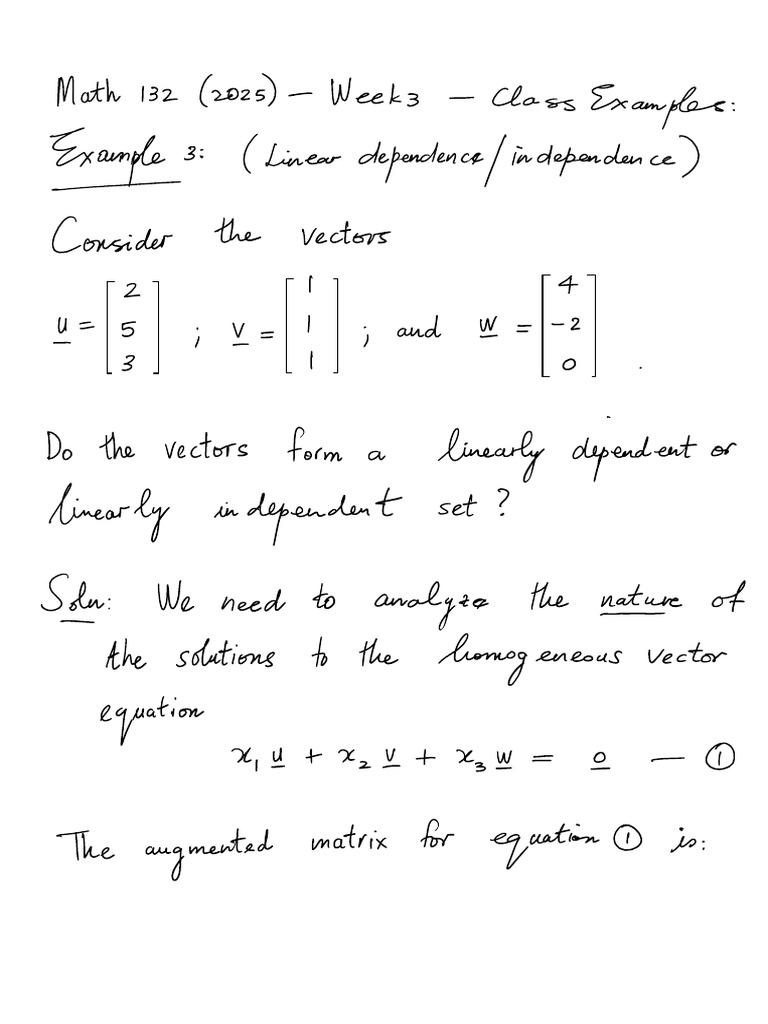 Math 132 (2025) – Week 3 – Class Examples:
Example 3: (Linear dependence/independence)
Consider the vectors
u = [2 5 3] ; v = [1 1 1] ; and w = [4 -2 0].
Do the vectors form a linearly dependent or
linearly independent set?
Soln: We need to analyze the nature of
the solutions to the homogeneous vector
equation
x₁ u + x₂ v + x₃ w = 0 — ①
The augmented matrix for equation ① is: